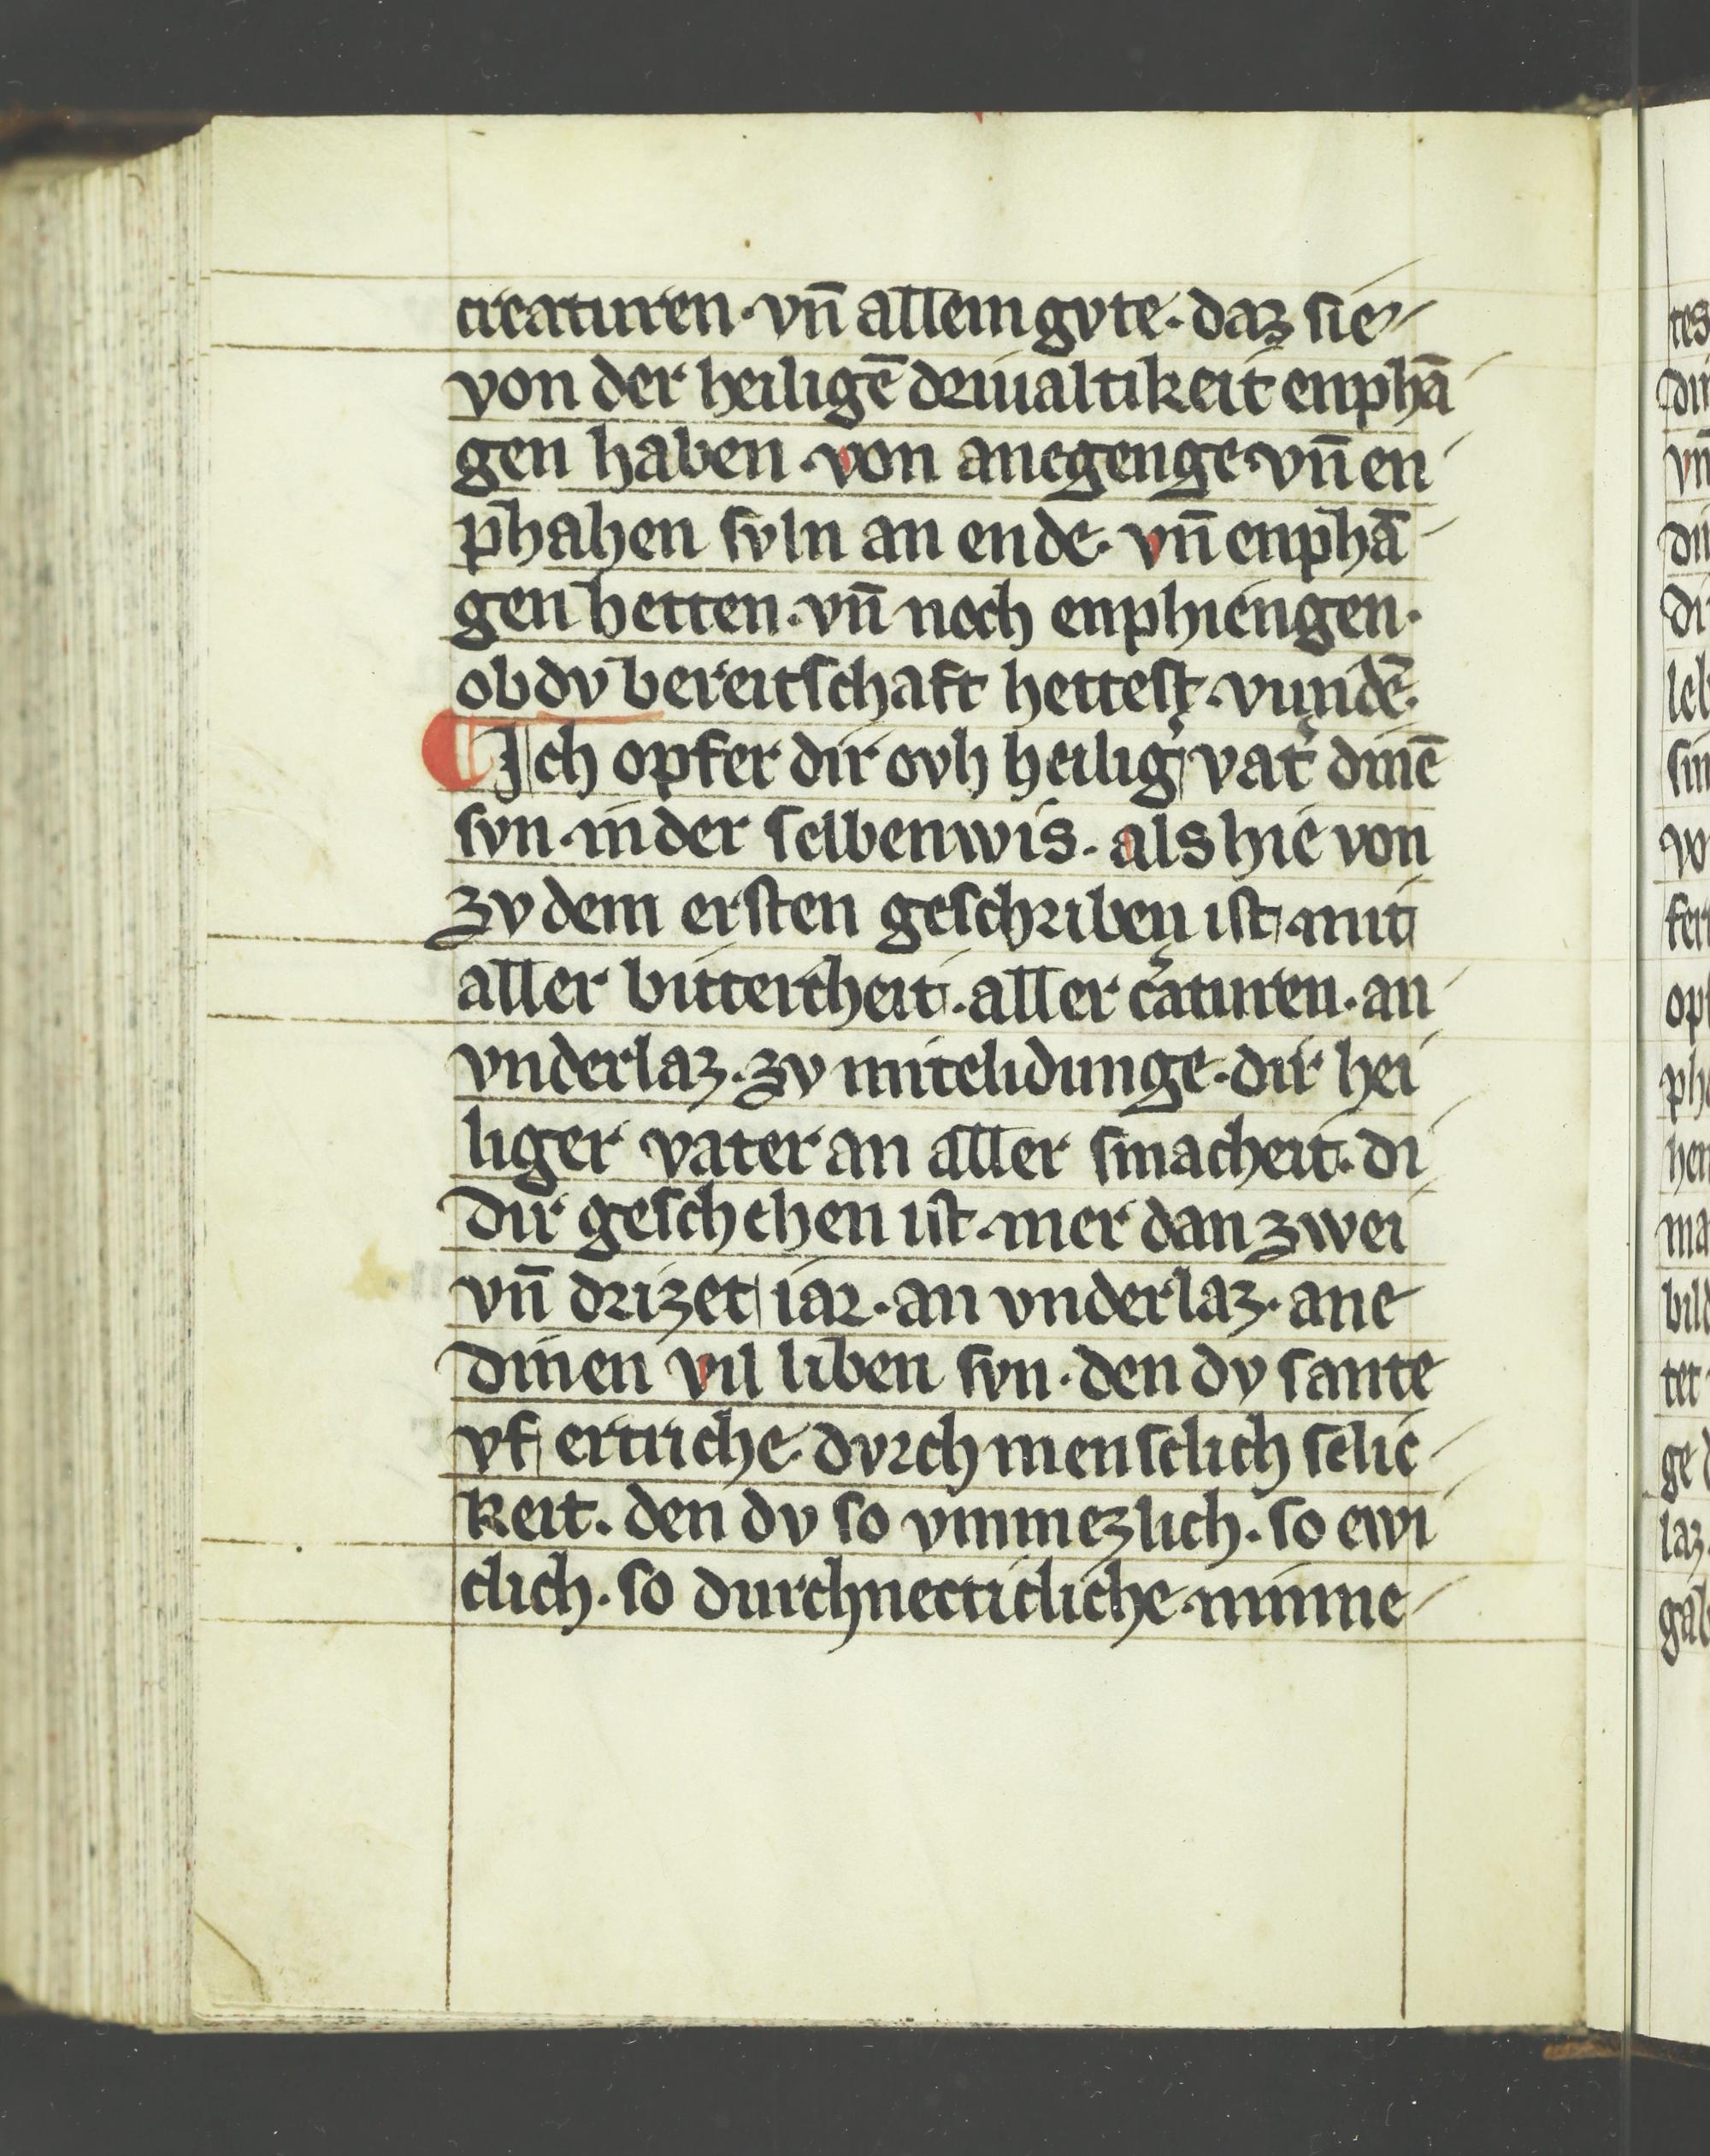 creaturen · vn̄ allem gvte · daz sie
von der heiligē driualtikeit enphā
gen haben · von anegenge · vn̄ en
phahen svln an ende · vn̄ enphā
gen hetten · vn̄ noch enphiengen ·
ob dv bereitschaft hettest · vundē ·
Ich opfer dir ovh heilig̾ vat̾ dinē
svn · in der selben wis · als hie von
zv dem ersten geschriben ist · mit
aller bittercheit · aller c̾aturen · an
vnderlaz · zv mitelidunge · dir hei
liger vater an aller smacheit · di
dir geschehen ist · mer dan zwei
vn̄ drizet iar · an vnderlaz · ane
dinen vil liben svn · den dv sante
vf ertriche · dvrch mensclich selic
keit · den dv so vnmezlich · so ewi
clich · so durchnecticliche · minne